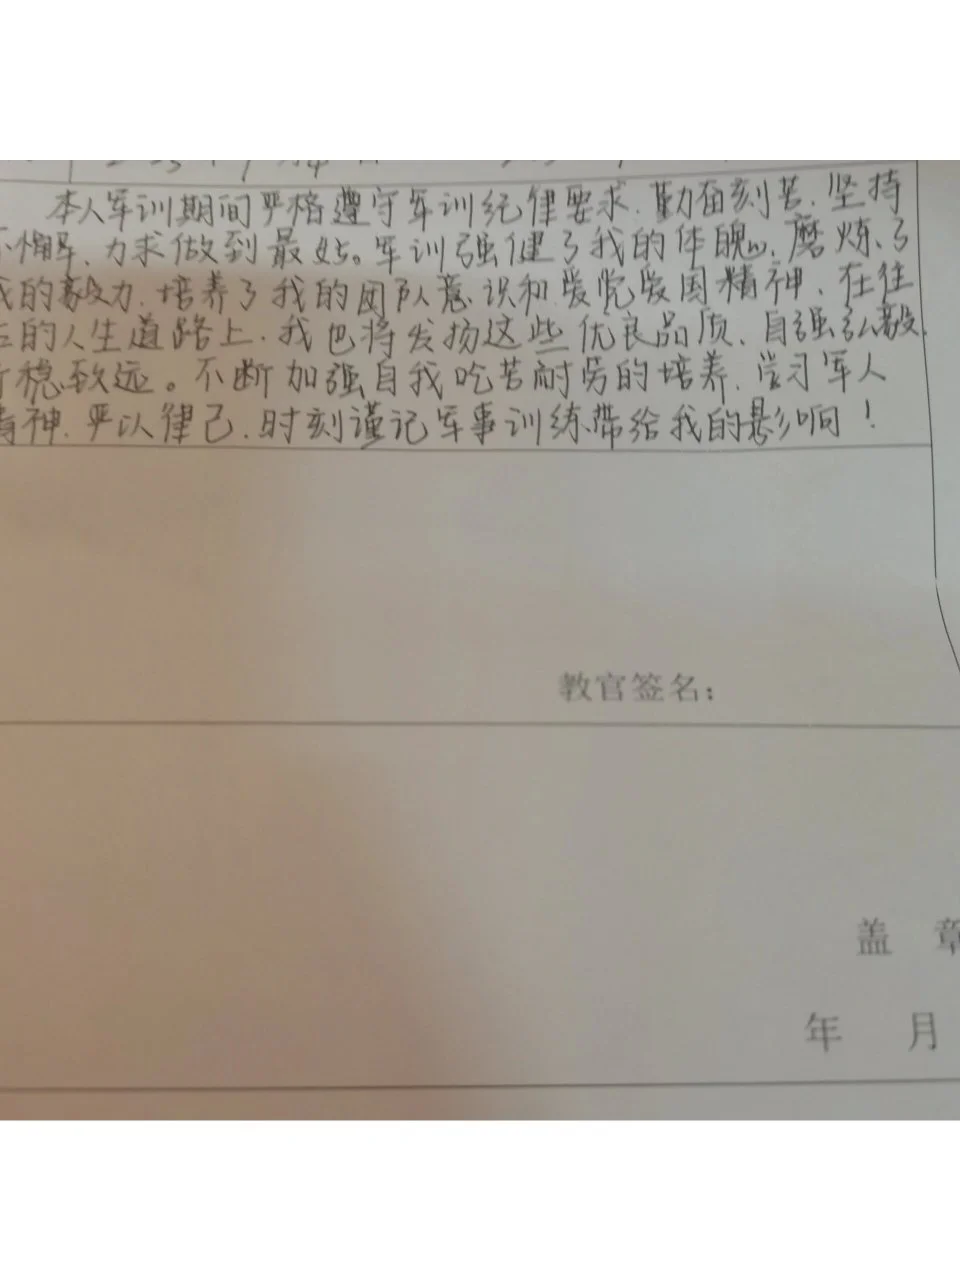 本人军训期间严格遵守军训纪律要求、勤奋刻苦、坚持
不懈、力求做到最好。军训强健了我的体魄、磨炼了
我的毅力、培养了我的团队意识和爱党爱国精神、在往
后的人生道路上、我也将发扬这些优良品质、自强弘毅、
行稳致远。不断加强自我吃苦耐劳的培养、学习军人
精神、严以律己、时刻谨记军事训练带给我的影响！
教官签名：
盖 章
年 月